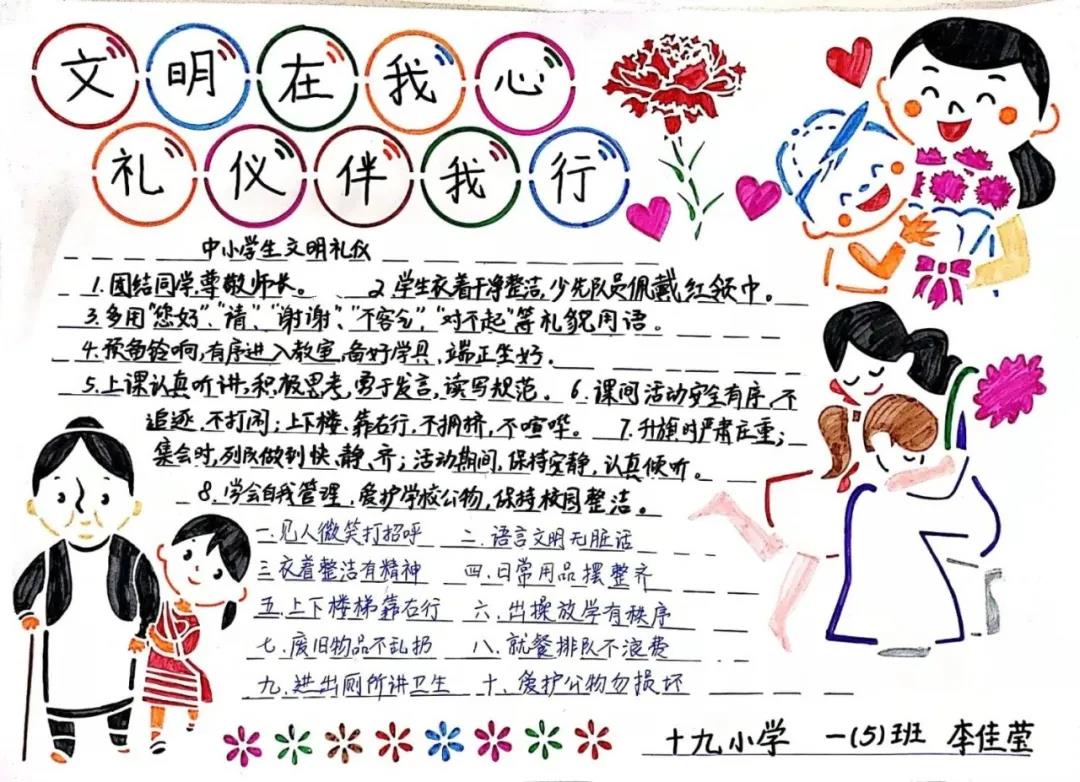 文明在我心
礼仪伴我行
中小学生文明礼仪
1.团结同学,尊敬师长。 2.学生衣着干净整洁,少先队员佩戴红领巾。
3.多用“您好”、“请”、“谢谢”、“不客气”,“对不起”等礼貌用语。
4.预备铃响,有序进入教室,备好学具,端正坐好.
5.上课认真听讲,积极思考,勇于发言,读写规范。 6.课间活动安全有序,不
追逐,不打闹;上下楼,靠右行,不拥挤,不喧哗。 7.升旗时严肃庄重;
集会时,列队做到快、静、齐;活动期间,保持安静,认真倾听。
8.学会自我管理,爱护学校公物,保持校园整洁。
一.见人微笑打招呼 二.语言文明无脏话
三.衣着整洁有精神 四.日常用品摆整齐
五.上下楼梯靠右行 六.出操放学有秩序
七.废旧物品不乱扔 八.就餐排队不浪费
九.进出厕所讲卫生 十、爱护公物勿损坏
十九小学 一(5)班 李佳莹